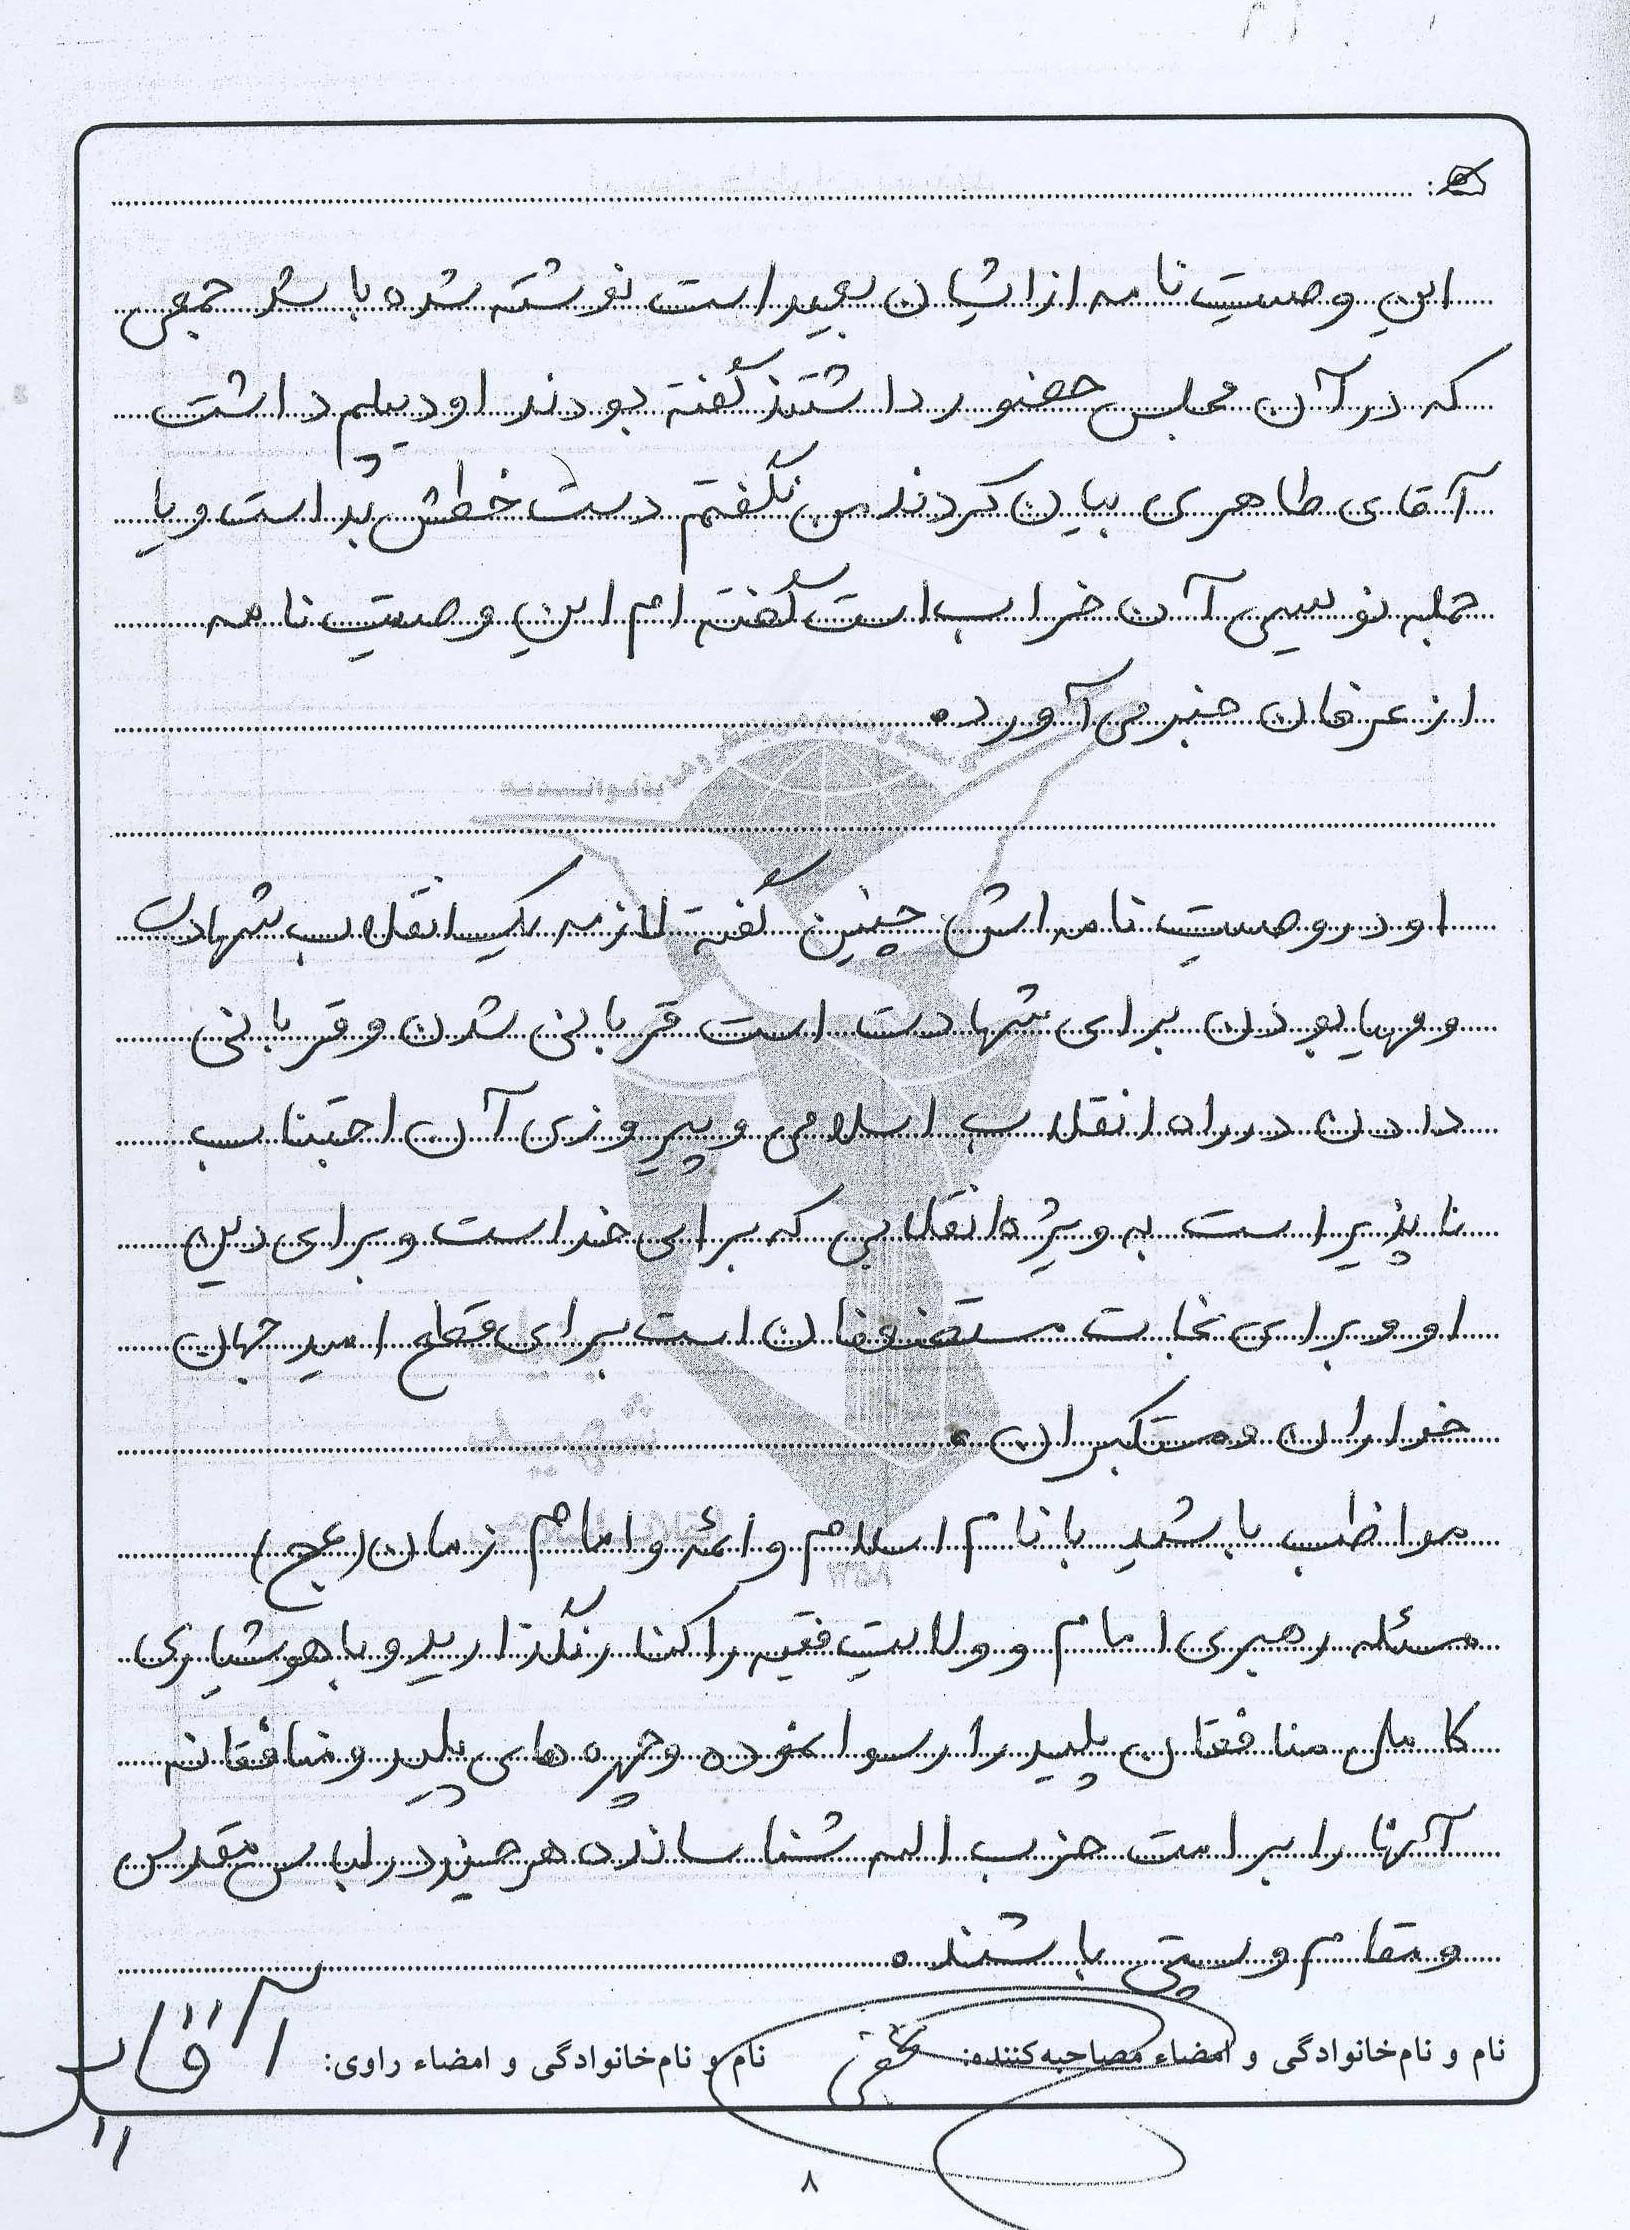 این وصیت نامه از ایشان بعید است نوشته شده باشد جمعی
که در آن مجلس حضور داشتند گفته بودند او دیپلم داشت
آقای طاهری بیان کردند من نگفتم دست خطش بد است و یا
جمله نویسی آن خراب است گفته ام این وصیت نامه
از عرفان خبر می آورد.
او در وصیت نامه اش چنین گفته لازمه یک انقلاب شهادت
و مهیا بودن برای شهادت است قربانی شدن و قربانی
دادن در راه انقلاب اسلامی و پیروزی آن اجتناب
ناپذیر است به ویژه انقلابی که برای خداست و برای دین
او و برای نجات مستضعفان است برای قطع امید جهان
خواران و مستکبران.
مواظب باشید با نام اسلام و ائمه و امام زمان (عج)
مسئله رهبری امام و ولایت فقیه را کنار نگذارید و با هوشیاری
کامل منافقان پلید را رسوا نموده و چهره های پلید و منافقانه
آنها را بر امت حزب اله شناسانده هر چند در لباس مقدس
و مقام و پستی باشند.
نام و نام‌خانوادگی و امضاء مصاحبه‌کننده: نام و نام‌خانوادگی و امضاء راوی:
۸